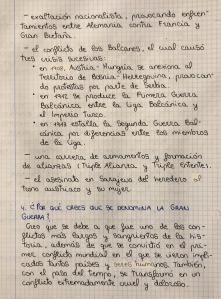 - exaltación nacionalista, provocando enfren-
tamientos entre Alemania contra Francia y
Gran Bretaña.
- el conflicto de los Balcanes, el cual causó
tres crisis sucesivas:
• en 1908, Austria-Hungría se anexiona al
territorio de Bosnia-Herzegovina, provocan-
do protestas por parte de Serbia.
• en 1912 se produce la Primera Guerra
Balcánica entre la Liga Balcánica y
el Imperio Turco.
• en 1913 estalla la Segunda Guerra Bal-
cánica por diferencias entre los miembros
de la Liga.
- una carrera de armamentos y formación
de alianzas: Triple Alianza y Triple Entente.
- el asesinato en Sarajevo del heredero al
trono austriaco y su mujer.
4. ¿Por qué crees que se denomina la Gran
Guerra?
Creo que se debe a que fue uno de los con-
flictos más largos y sangrientos de la his-
toria, además de que se convirtió en el pri-
mer conflicto mundial en el que se vieron impli-
cados tantos países y seres humanos. También,
con el paso del tiempo, se transformó en un
conflicto extremadamente cruel y doloroso.